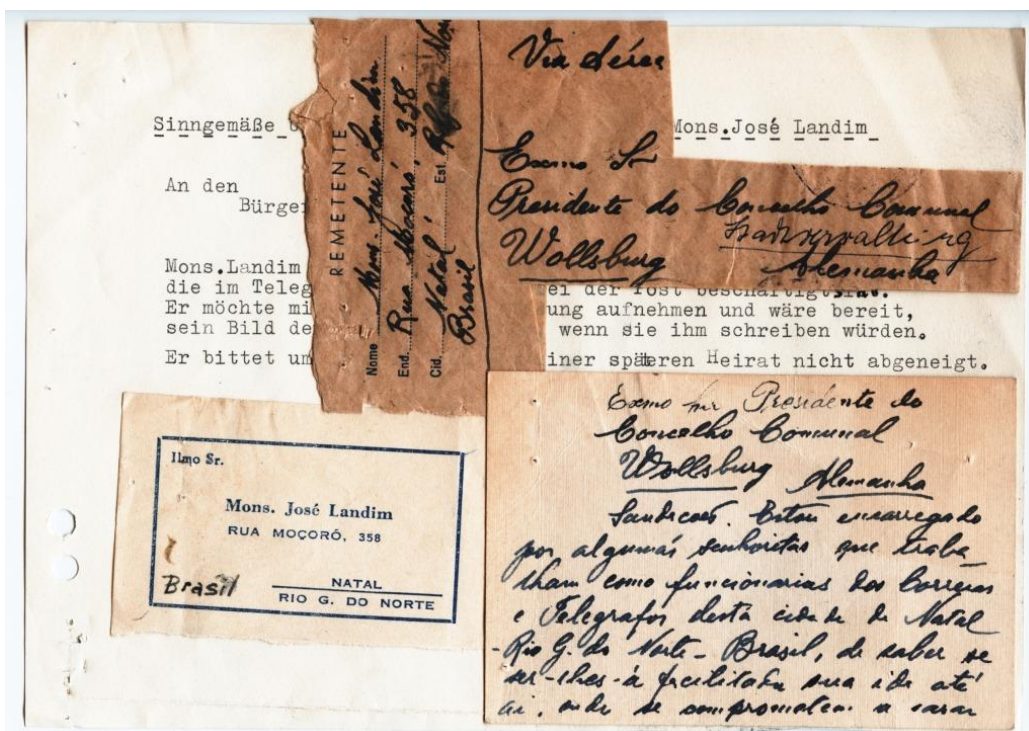 Sinngemäße
Mons.José Landim
An den
Bürge
Mons.Landim
die im Teleg
ei der Post beschäftigt
Er möchte mi
ung aufnehmen und wäre bereit,
sein Bild de
wenn sie ihm schreiben würden.
Er bittet um
iner späteren Heirat nicht abgeneigt.
REMETENTE
Nome Mons. José Landim
End. Rua Mocoró, 358
Cid. Natal Est.
Brasil
Via Aérea
Exmo Sr
Presidente do Concelho Comunal
Stadtverwaltung
Wollsburg Alemanha
Ilmo Sr.
Mons. José Landim
RUA MOÇORÓ, 358
Brasil
NATAL
RIO G. DO NORTE
Exmo Presidente do
Concelho Comunal
Wollsburg Alemanha
Estou encarregado
por algumas senhoritas que traba
lham como funcionarias dos Correios
e Telegrafos desta cidade de Natal
-Rio G. do Norte - Brasil, de saber se
ser-lhes-á facilitada sua ida até
ai, onde se comprometem a casar